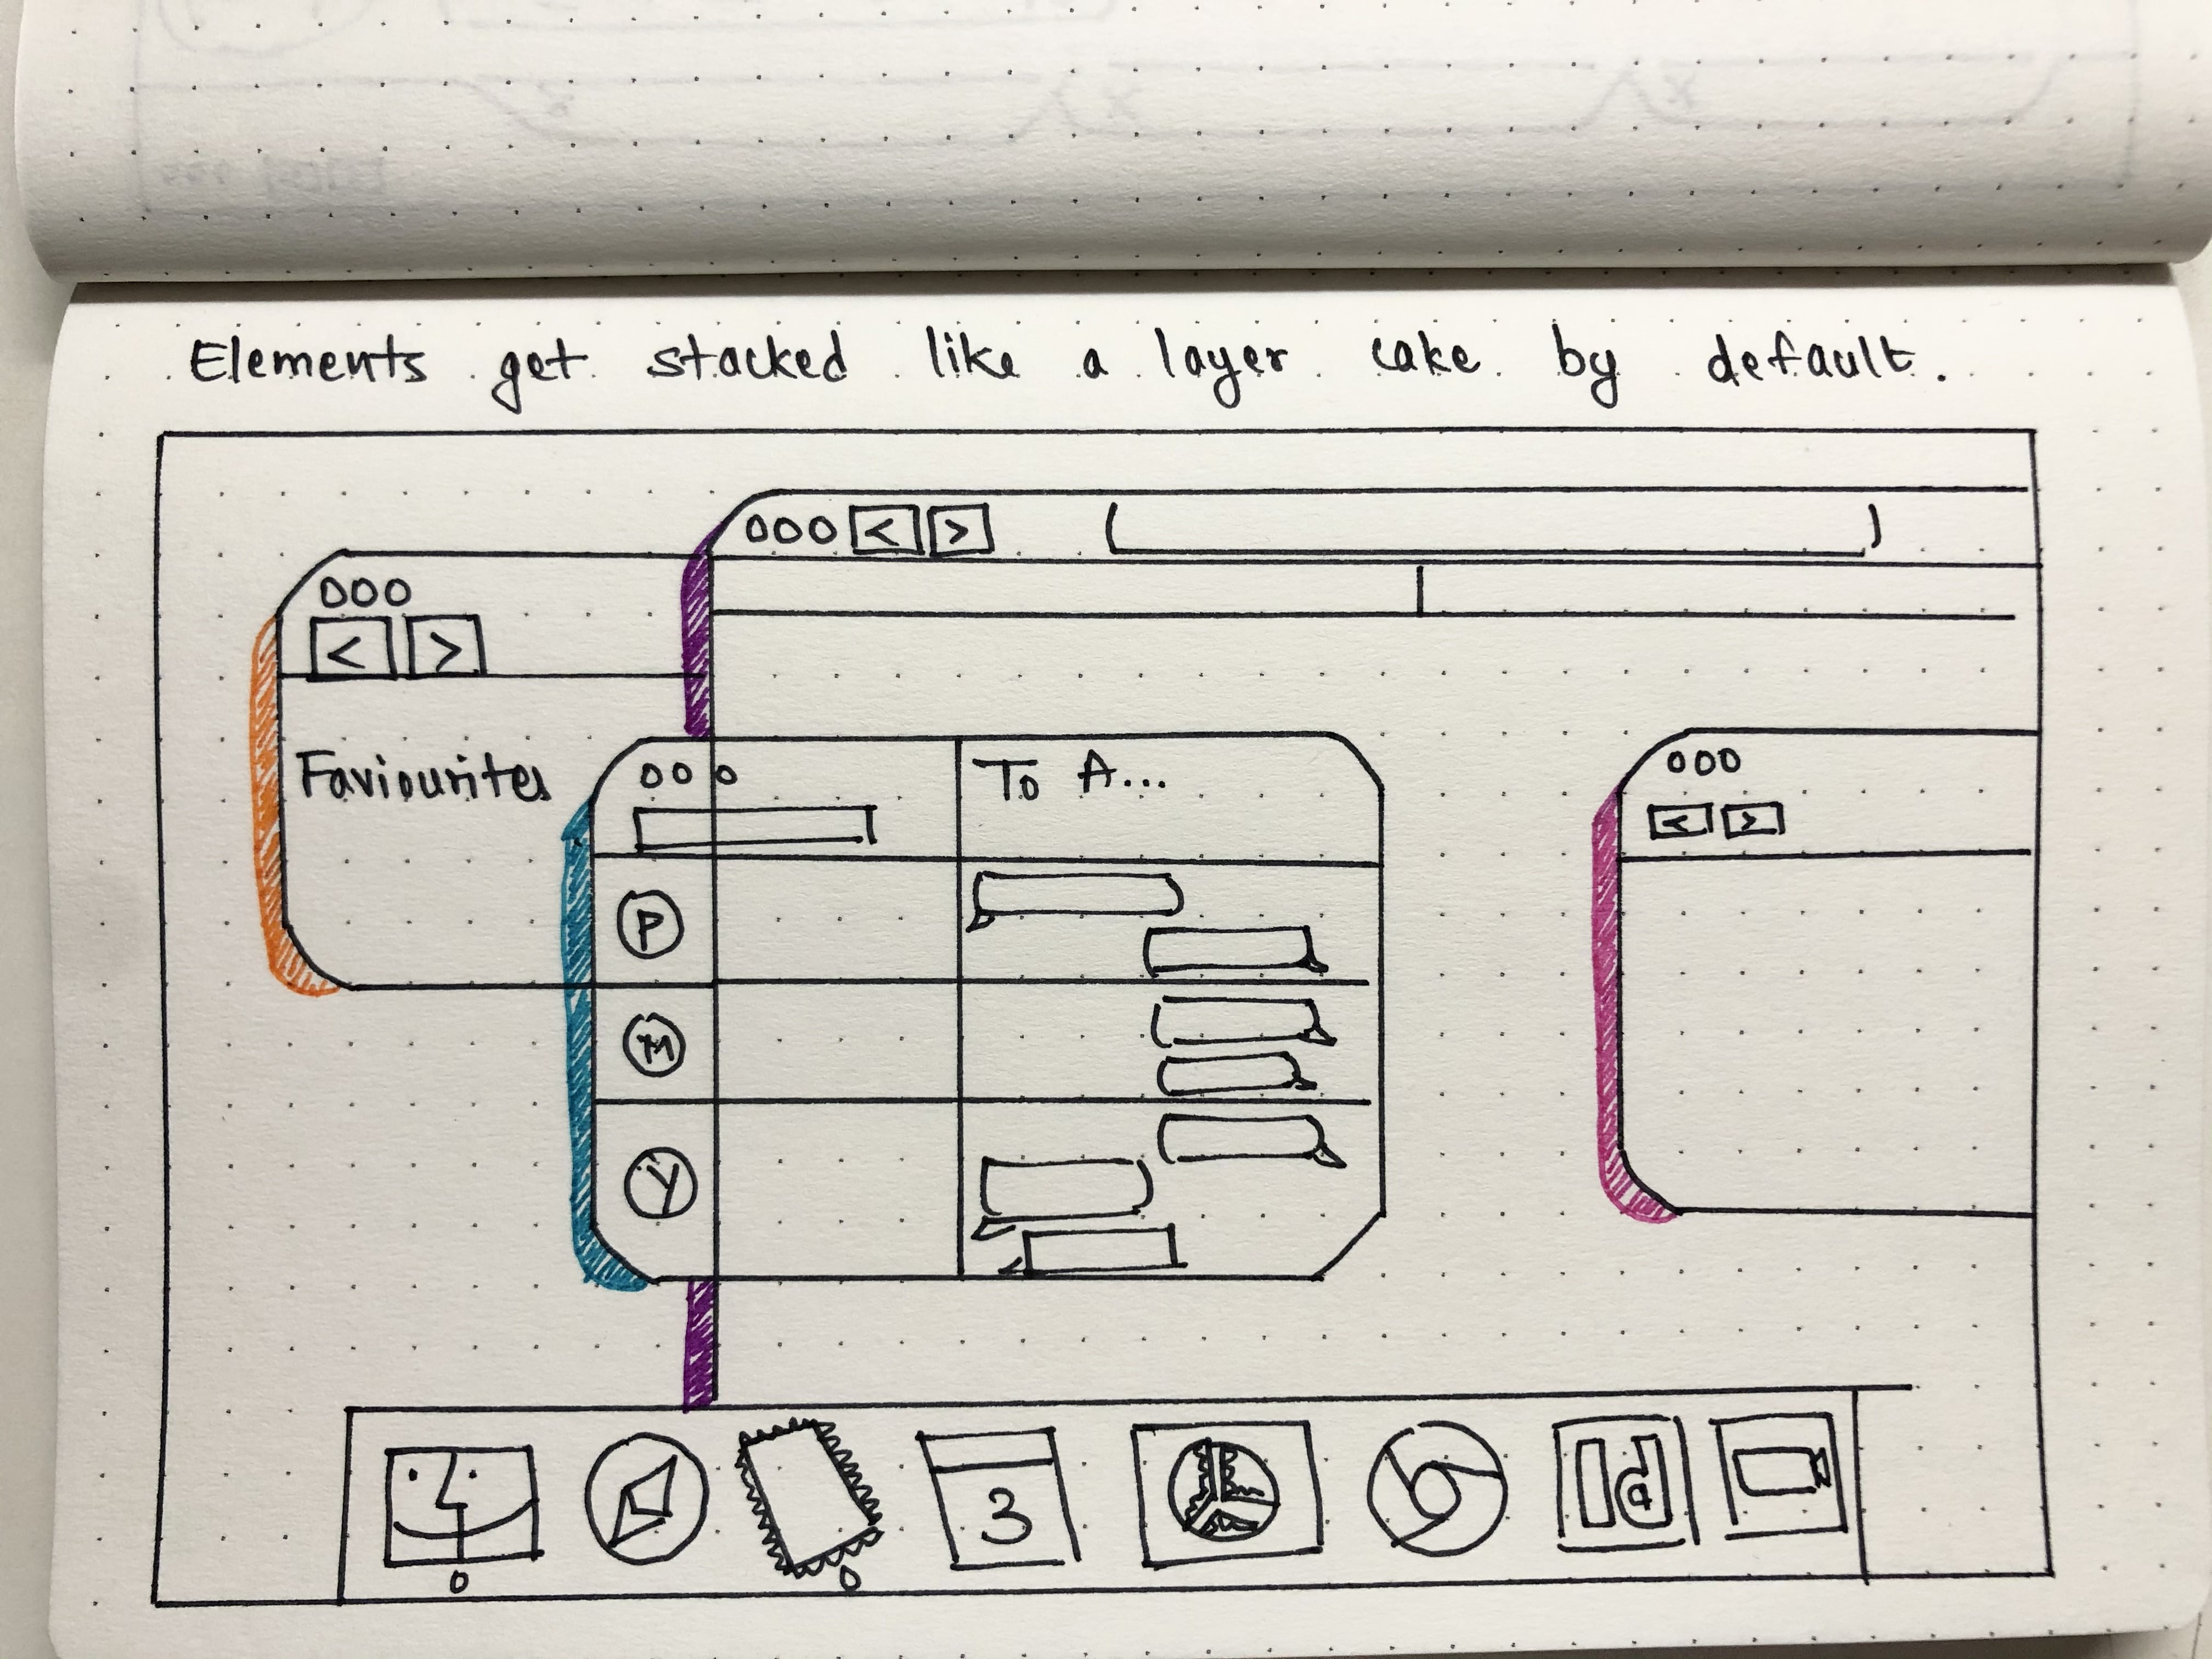 Elements get stacked like a layer cake by default.
000 < >
000
< >
Faviourites
000
To A...
000
< >
P
M
Y
3
Id